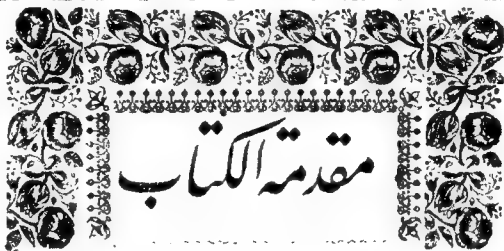 مقدمة الكتاب